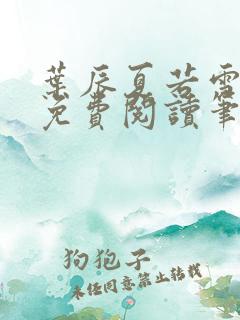 葉辰夏若雪
免費閱讀筆
狗狍子
未经同意禁止转载